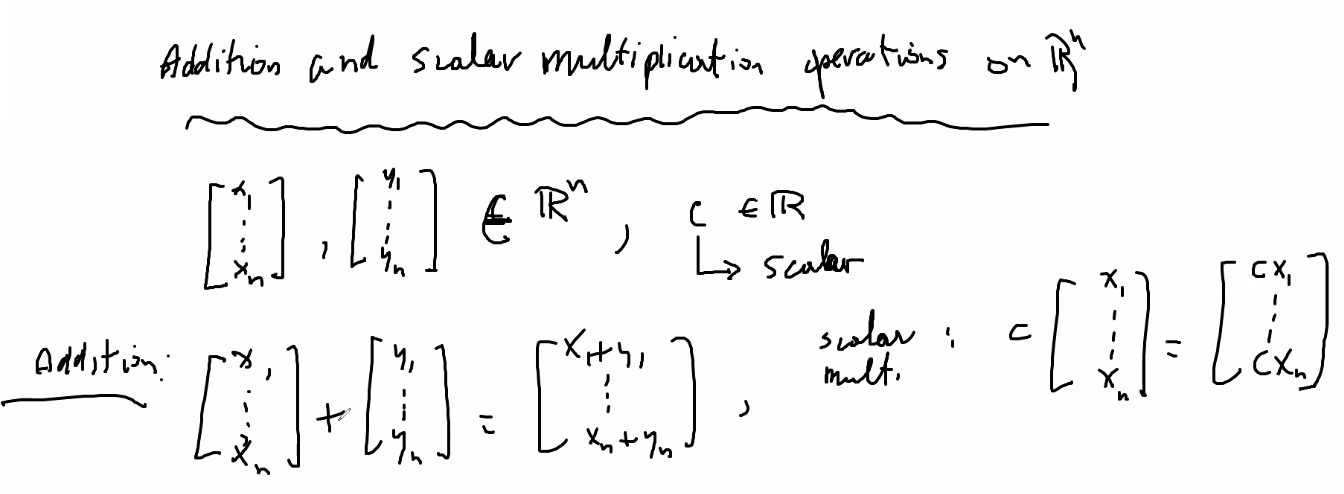 Addition and scalar multiplication operations on ℝⁿ
[x₁ ⋮ xₙ] , [y₁ ⋮ yₙ] ∈ ℝⁿ , c ∈ ℝ
↳ scalar
Addition: [x₁ ⋮ xₙ] + [y₁ ⋮ yₙ] = [x₁+y₁ ⋮ xₙ+yₙ] ,
scalar mult. : c [x₁ ⋮ xₙ] = [cx₁ ⋮ cxₙ]